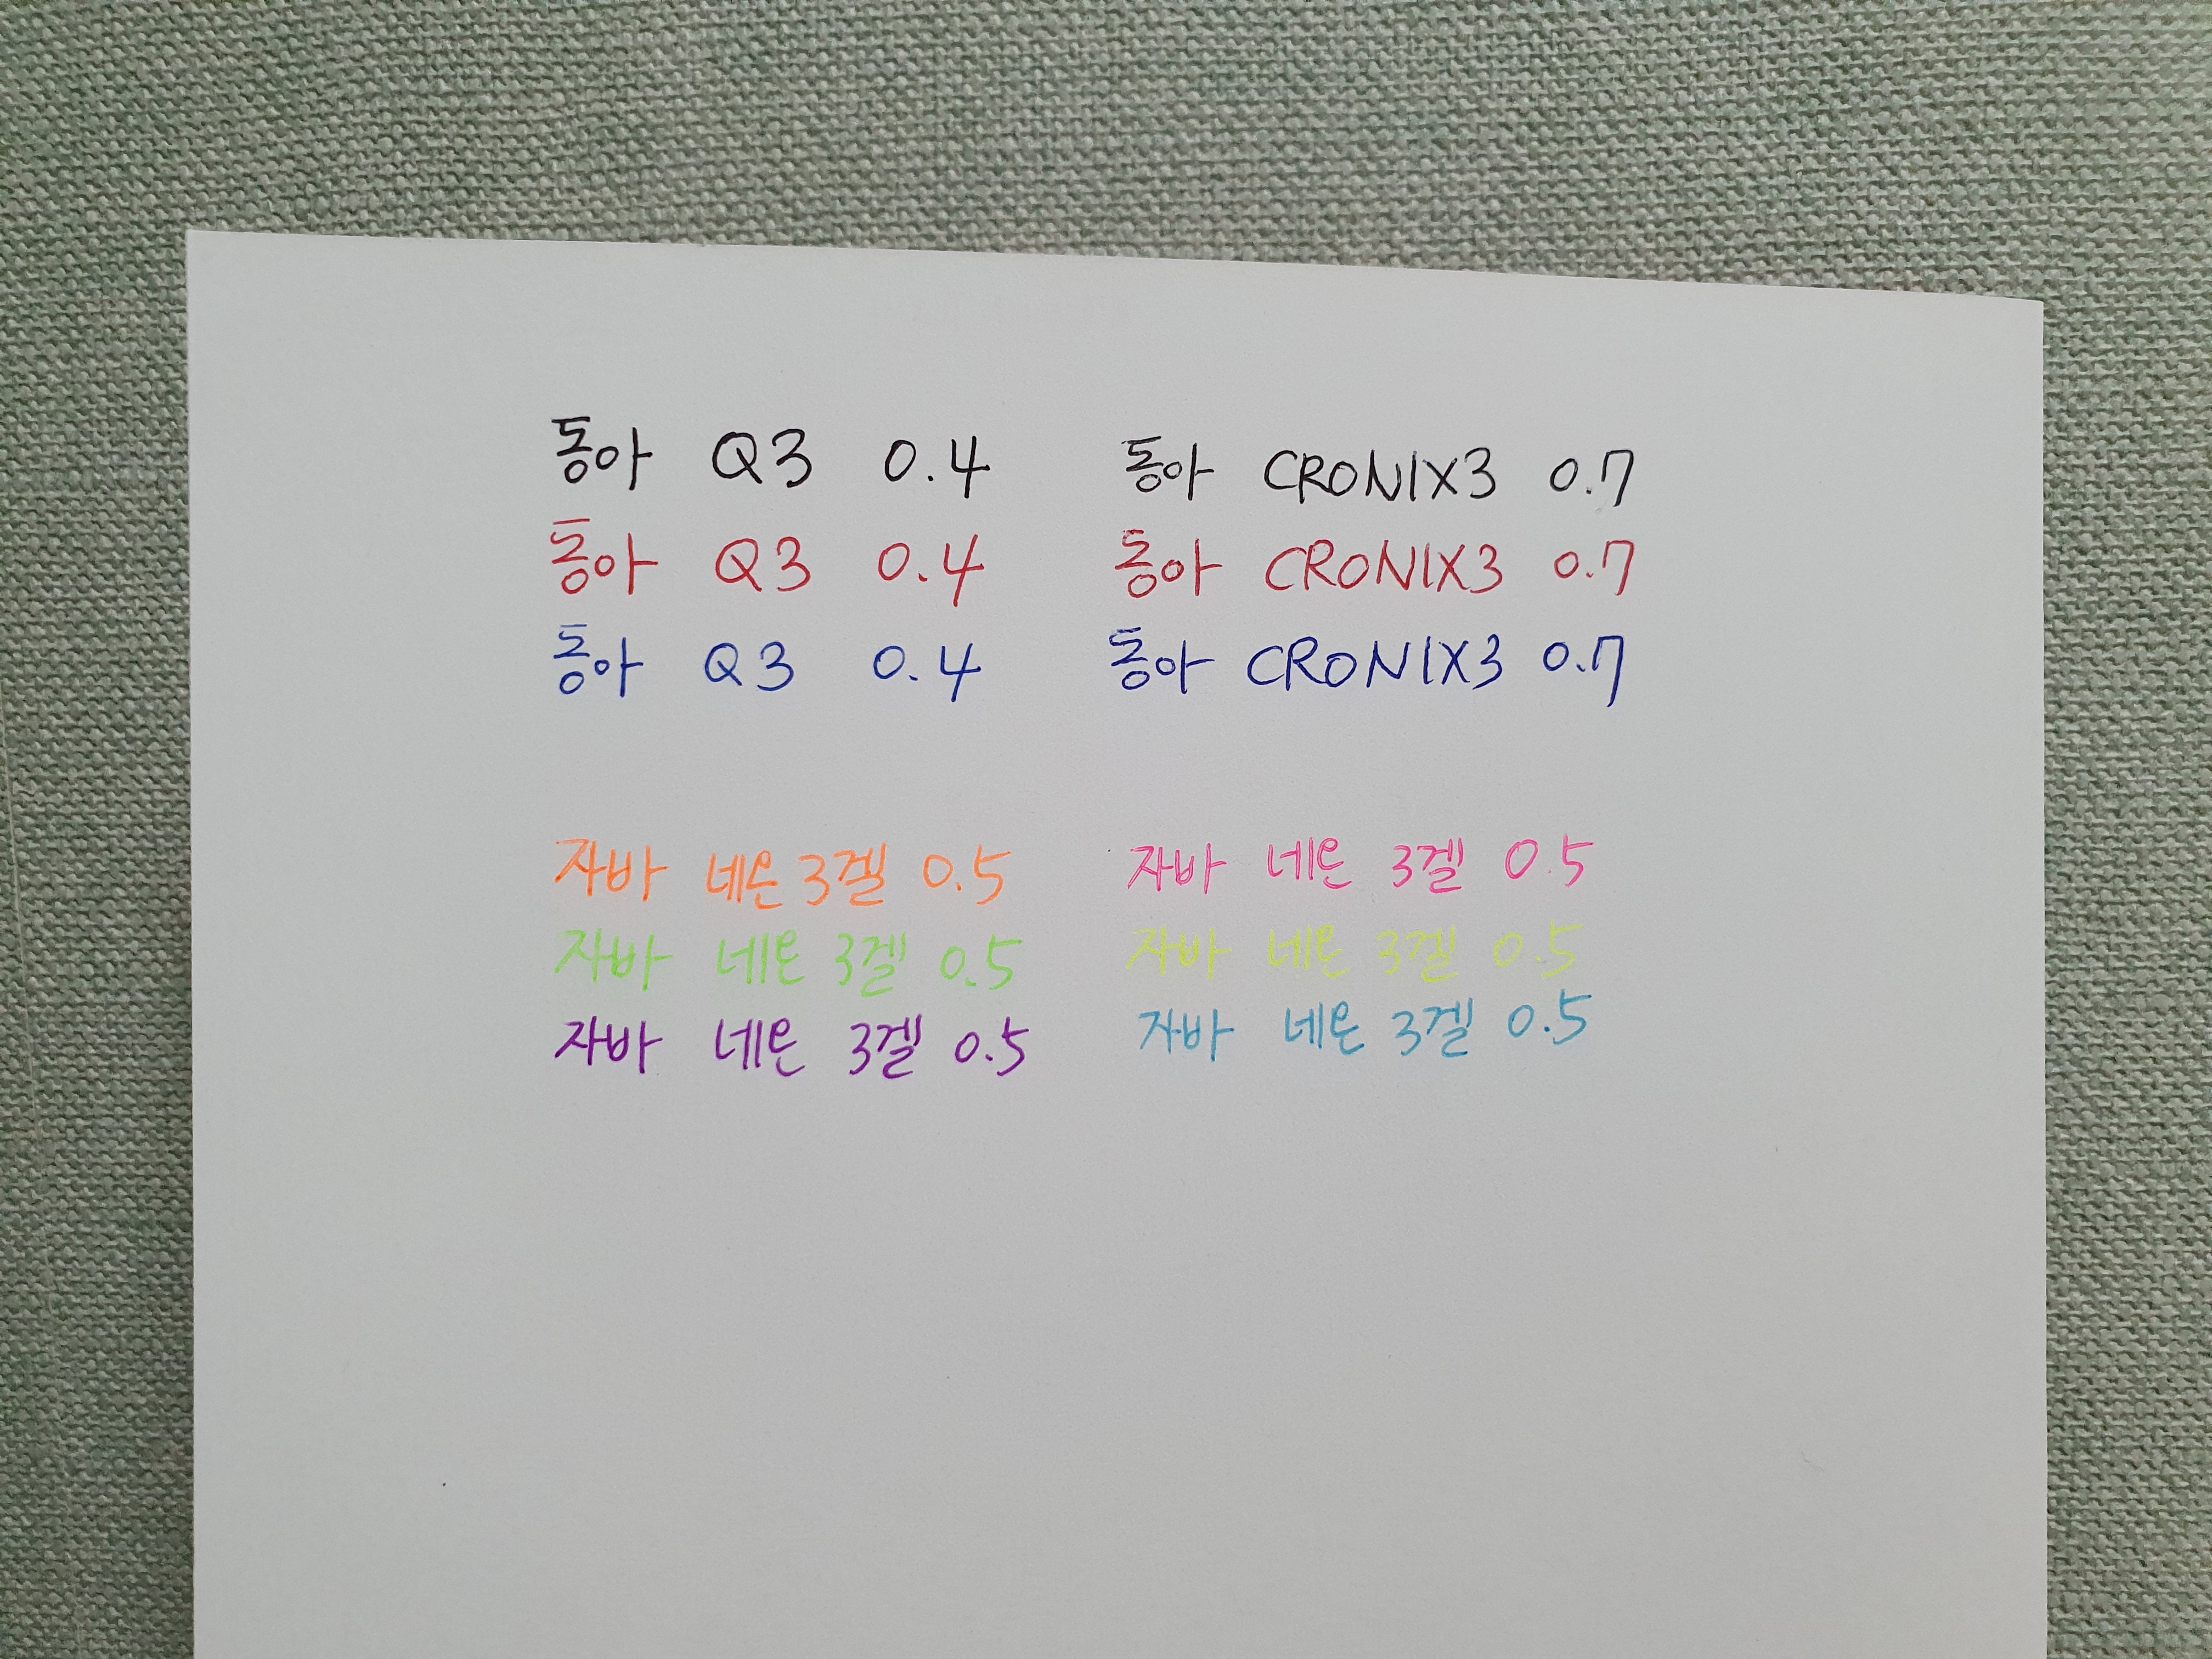 동아 Q3 0.4 동아 CRONIX3 0.7
동아 Q3 0.4 동아 CRONIX3 0.7
동아 Q3 0.4 동아 CRONIX3 0.7
자바 네온 3겔 0.5 자바 네온 3겔 0.5
자바 네온 3겔 0.5 자바 네온 3겔 0.5
자바 네온 3겔 0.5 자바 네온 3겔 0.5